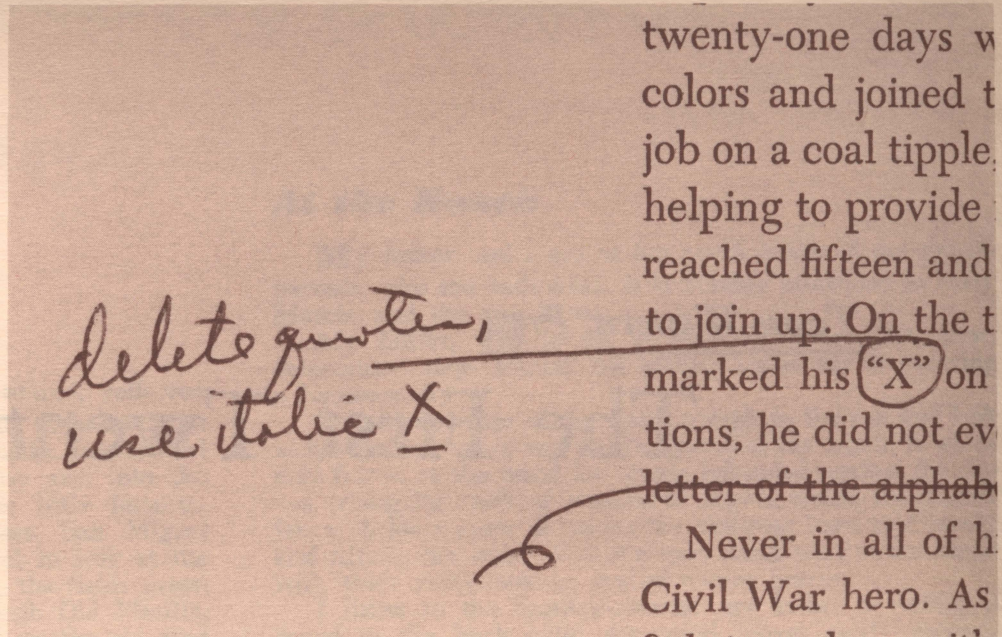 twenty-one days w
colors and joined t
job on a coal tipple,
helping to provide
reached fifteen and
to join up. On the t
marked his “X” on
tions, he did not ev
letter of the alphab
Never in all of h
Civil War hero. As
delete quotes,
use italic X